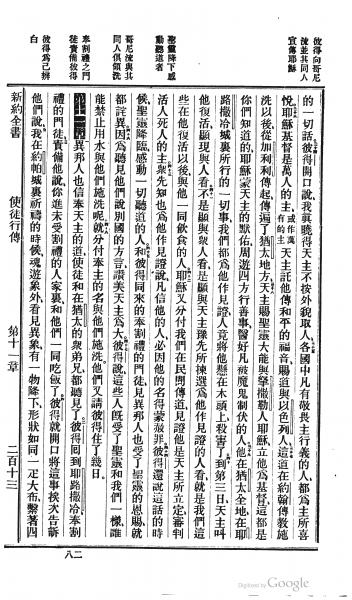 彼得向哥尼
流並其同人
宣傳耶穌
聖靈降下感
動聽道者
哥尼流與其
同人俱領洗
奉割禮之門
徒責備彼得
彼得為己辨
白
的一切話彼得開口說我真曉得天主不按外貌取人各國中凡有敬畏主行義的人都為主所喜
悅耶穌基督是萬人的主或作萬有的主天主託他傳和平的福音賜道與以色列人這道在約翰傳教施
洗以後從加利利傳起傳遍了猶太地方天主賜聖靈大能與拏撒勒人耶穌立他為基督這都是
你們知道的耶穌蒙天主的默佑周遊四方行善事醫好凡被魔鬼制伏的人他在猶太全地在耶
路撒冷城裏所行的一切事我們都為他作見證人竟將他懸在木頭上殺害了到第三日天主叫
他復活顯現與人看不是顯與眾人看是顯與天主豫先所揀選為他作見證的人看就是我們這
些在他復活以後與他一同飲食的人耶穌又分付我們在民間傳道見證他是天主所立定審判
活人死人的主眾先知也為他作見證說凡信他的人必因他的名得蒙赦罪彼得還說這話的時
候聖靈降臨感動一切聽道的人和彼得同來的奉割禮的門徒見異邦人也受了聖靈的恩賜就
都詫異因為聽見他們說別國的方言讚美天主為大彼得說這些人旣受了聖靈和我們一樣誰
能禁止用水與他們施洗呢就分付奉主的名與他們施洗他們又請彼得住了幾日
第十一章異邦人也信奉天主的道使徒和在猶太的眾弟兄都聽見了彼得回到耶路撒冷奉割
禮的門徒責備他說你進未受割禮的人家裏和他們一同吃飯了彼得就開口將這事挨次告訴
他們說我在約帕城裏祈禱的時候魂遊象外看見異象有一物降下形狀如同一疋大布繫著四
新約全書 使徒行傳 第十一章 二百十三
八二
Digitized by Google